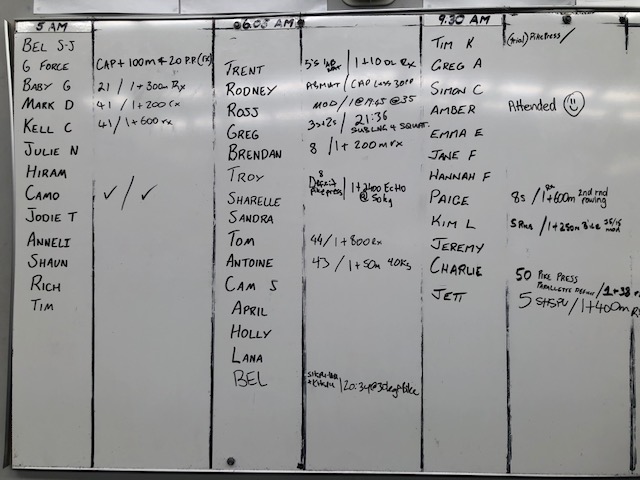 5 AM
BEL S-J
G FORCE CAP + 100m + 20 P.P (rx)
BABY G 21 / 1+300m Rx
MARK D 41 / 1+200 rx
KELL C 41 / 1+600 rx
JULIE N
HIRAM
CAMO ✓ / ✓
JODIE T
ANNELI
SHAUN
RICH
TIM
6.03 AM
TRENT 5's / 1+10 DL Rx
RODNEY / CAP
ROSS MOD / @ 35
GREG 3s+2s / 21:36
SUB LNG & SQUAT.
BRENDAN 8 / 1+ 200m rx
TROY
SHARELLE 8 Deficit Pike press / 1+2400 ECHO @ 50kg
SANDRA
TOM 44 / 1+800 rx
ANTOINE 43 / 1+50m 40kg
CAM S
APRIL
HOLLY
LANA
BEL / 20:34 @
9.30 AM
TIM K Pike Press /
GREG A
SIMON C
AMBER Attended ☺
EMMA E
JANE F
HANNAH F
PAIGE 8s / 1+600m 2nd rnd rowing
KIM L / 1+250m Bike mod
JEREMY
CHARLIE 50 PIKE PRESS
PARALLETTE / 1+38
JETT 5 SHSPU / 1+400m R